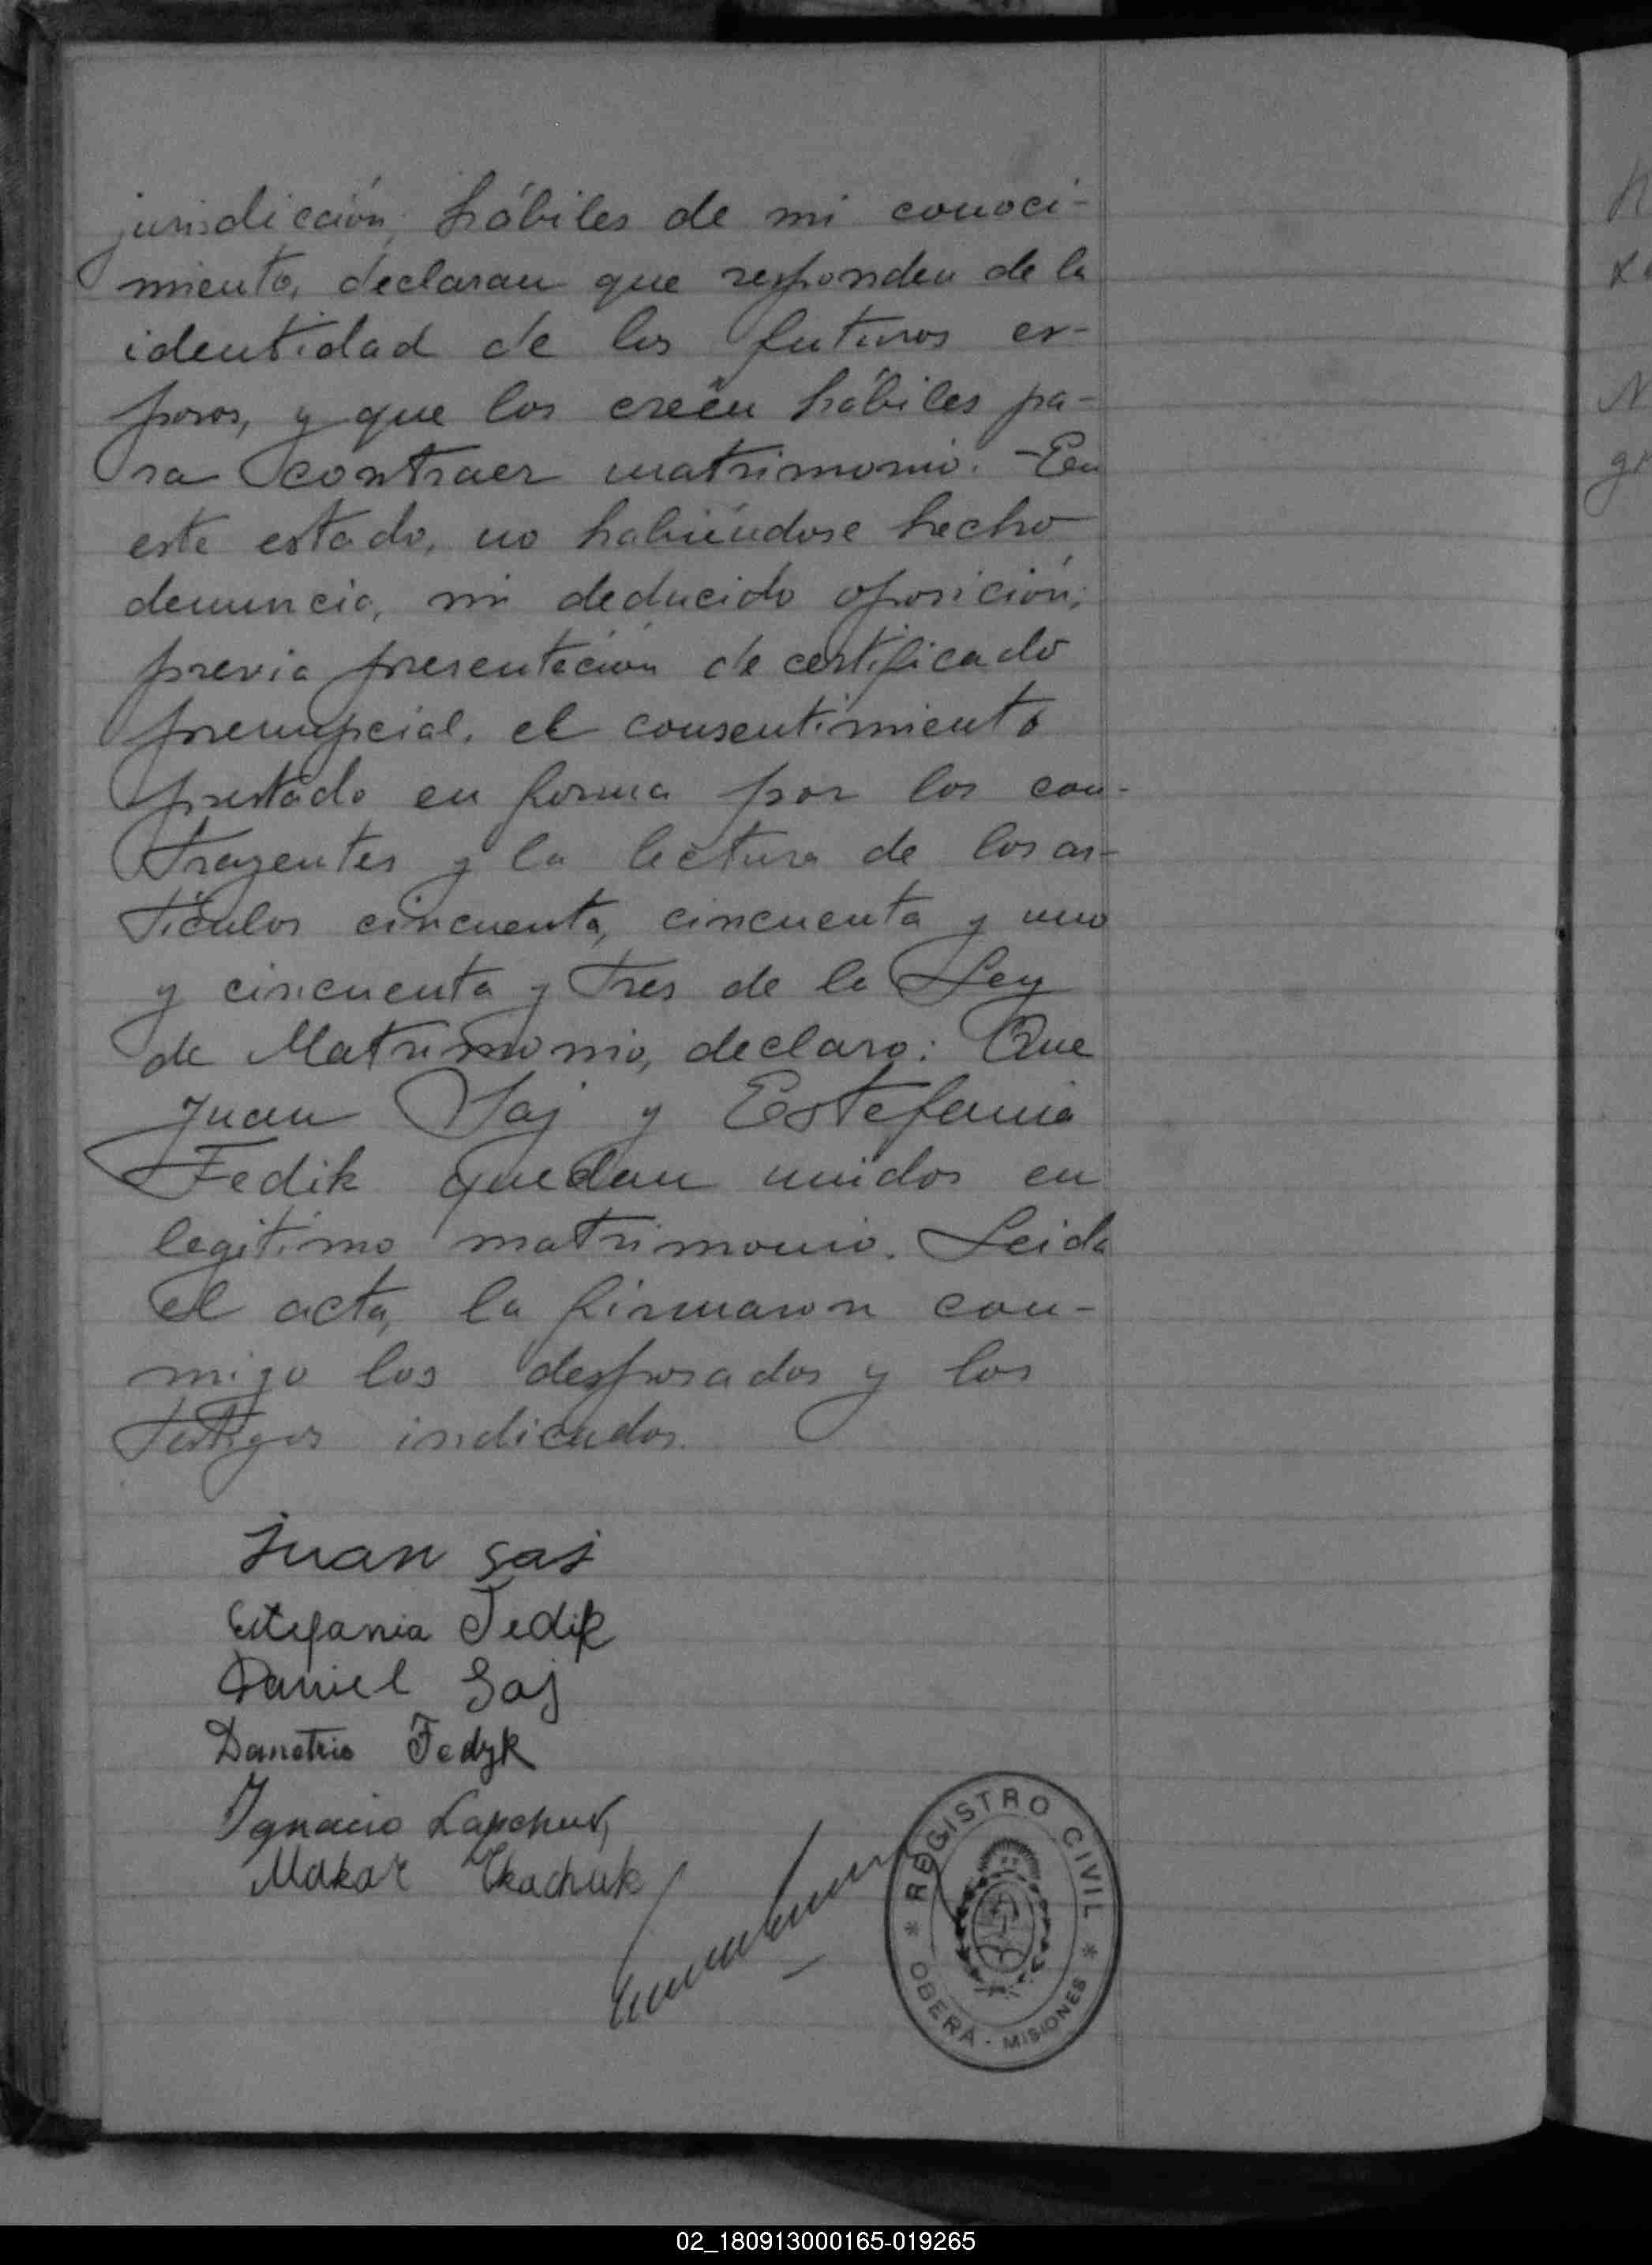 jurisdicción, hábiles de mi conoci-
miento, declaran que responden de la
identidad de los futuros es-
posos, y que los creén hábiles pa-
ra contraer matrimonio. - En
este estado, no habiéndose hecho
denuncia, ni deducido oposición,
previa presentación de certificado
prenupcial, el consentimiento
prestado en forma por los con-
trayentes y la lectura de los ar-
tículos cincuenta, cincuenta y uno
y cincuenta y tres de la Ley
de Matrimonio, declaro: Que
Juan Saj y Estefania
Fedik quedan unidos en
legítimo matrimonio. Leida
el acta, la firmaron con-
migo los desposados y los
testigos indicados.
Juan Saj
Estefania Fedik
Daniel Saj
Demetrio Fedyk
Ignacio
Makar Tkachuk
REGISTRO CIVIL
* OBERÁ - MISIONES *
02_180913000165-019265